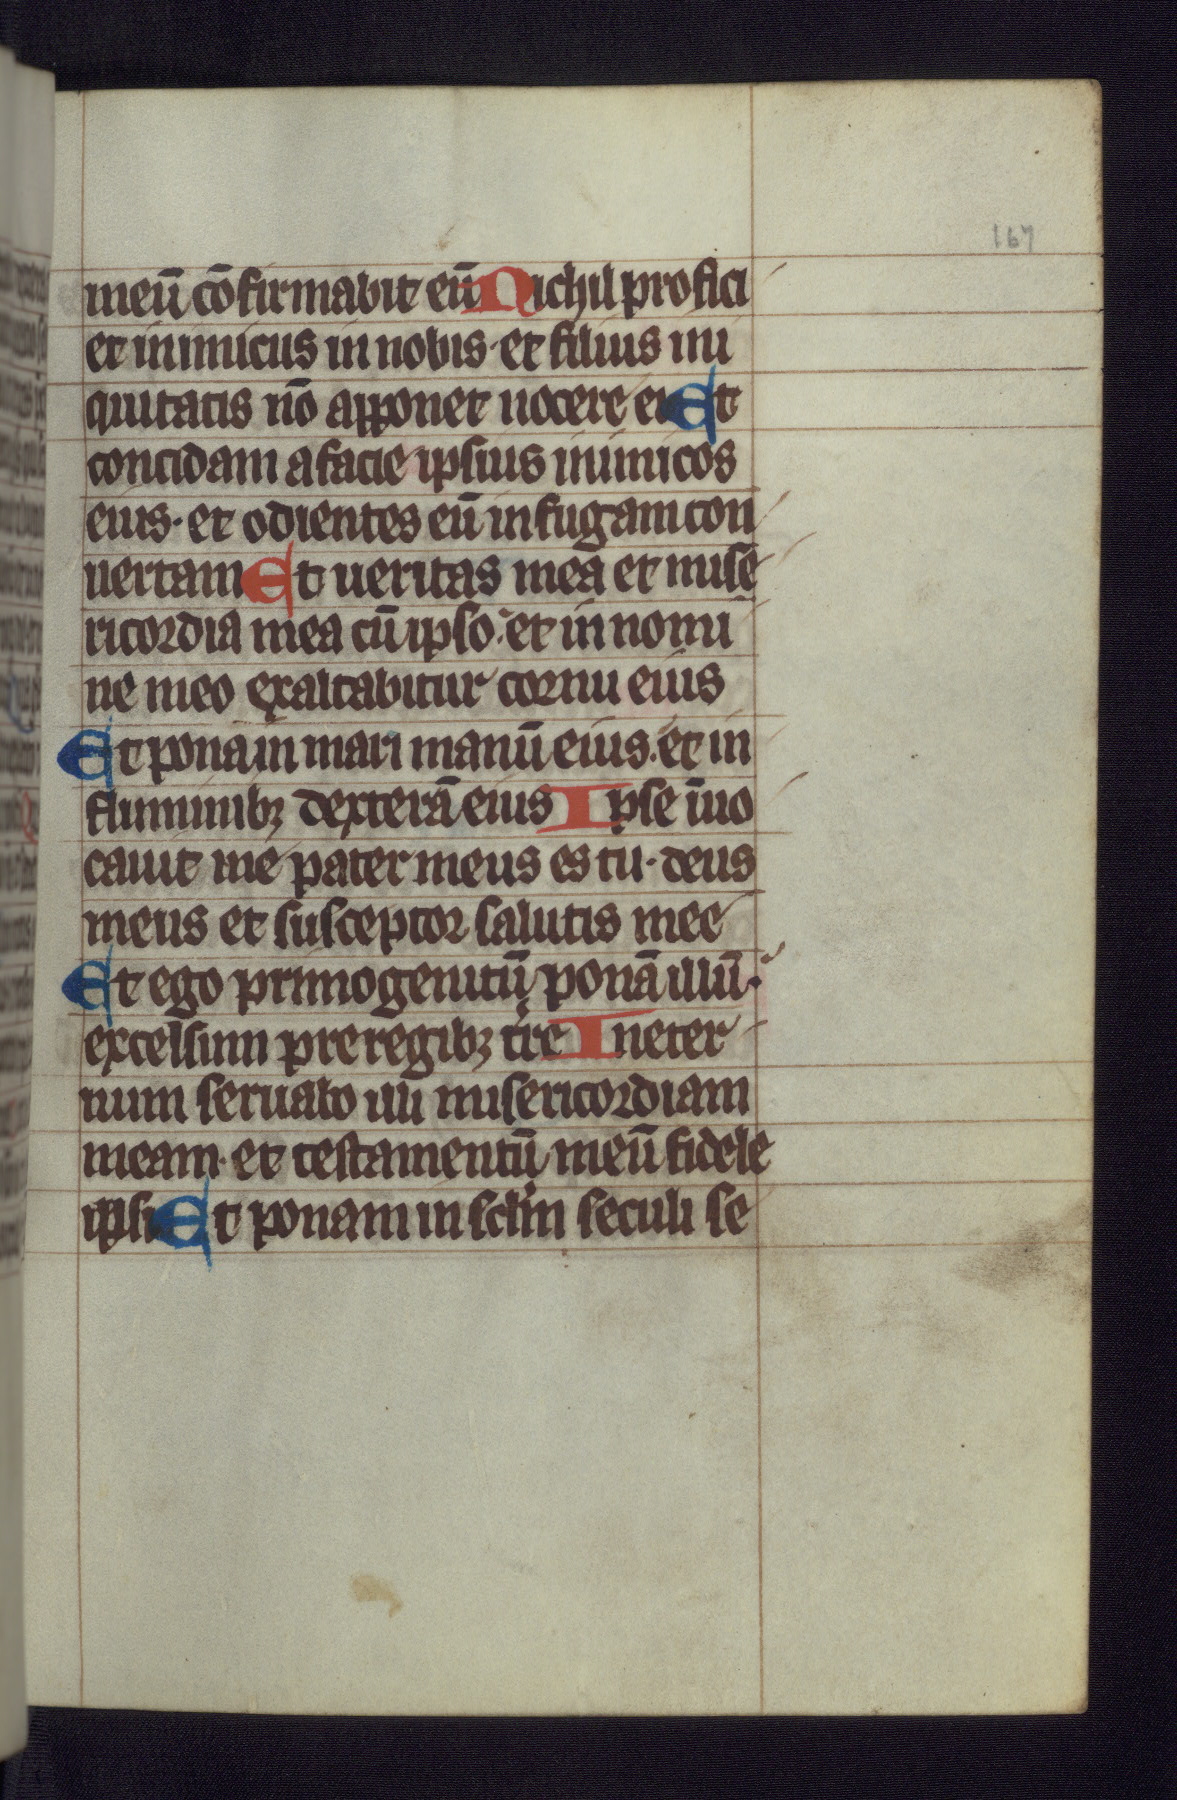 167
meū cōfirmabit eū Nichil profici
et inimicus in nobis· et filius ini
quitatis nō apponet nocere ei Et
concidam a facie ipsius inimicos
eius· et odientes eū in fugam con
uertam Et ueritas mea et mise
ricordia mea cū ipso· et in nomi
ne meo exaltabitur cornu eius
Et ponā in mari manū eius· et in
fluminibꝫ dexterā eius Ipse īuo
cauit me pater meus es tu· deus
meus et susceptor salutis mee
Et ego primogenitū ponā illū·
excelsum pre regibꝫ tr̄e In eter
num seruabo illi misericordiam
meam· et testamentū meū fidele
ipsi Et ponam in sclm̄ seculi se